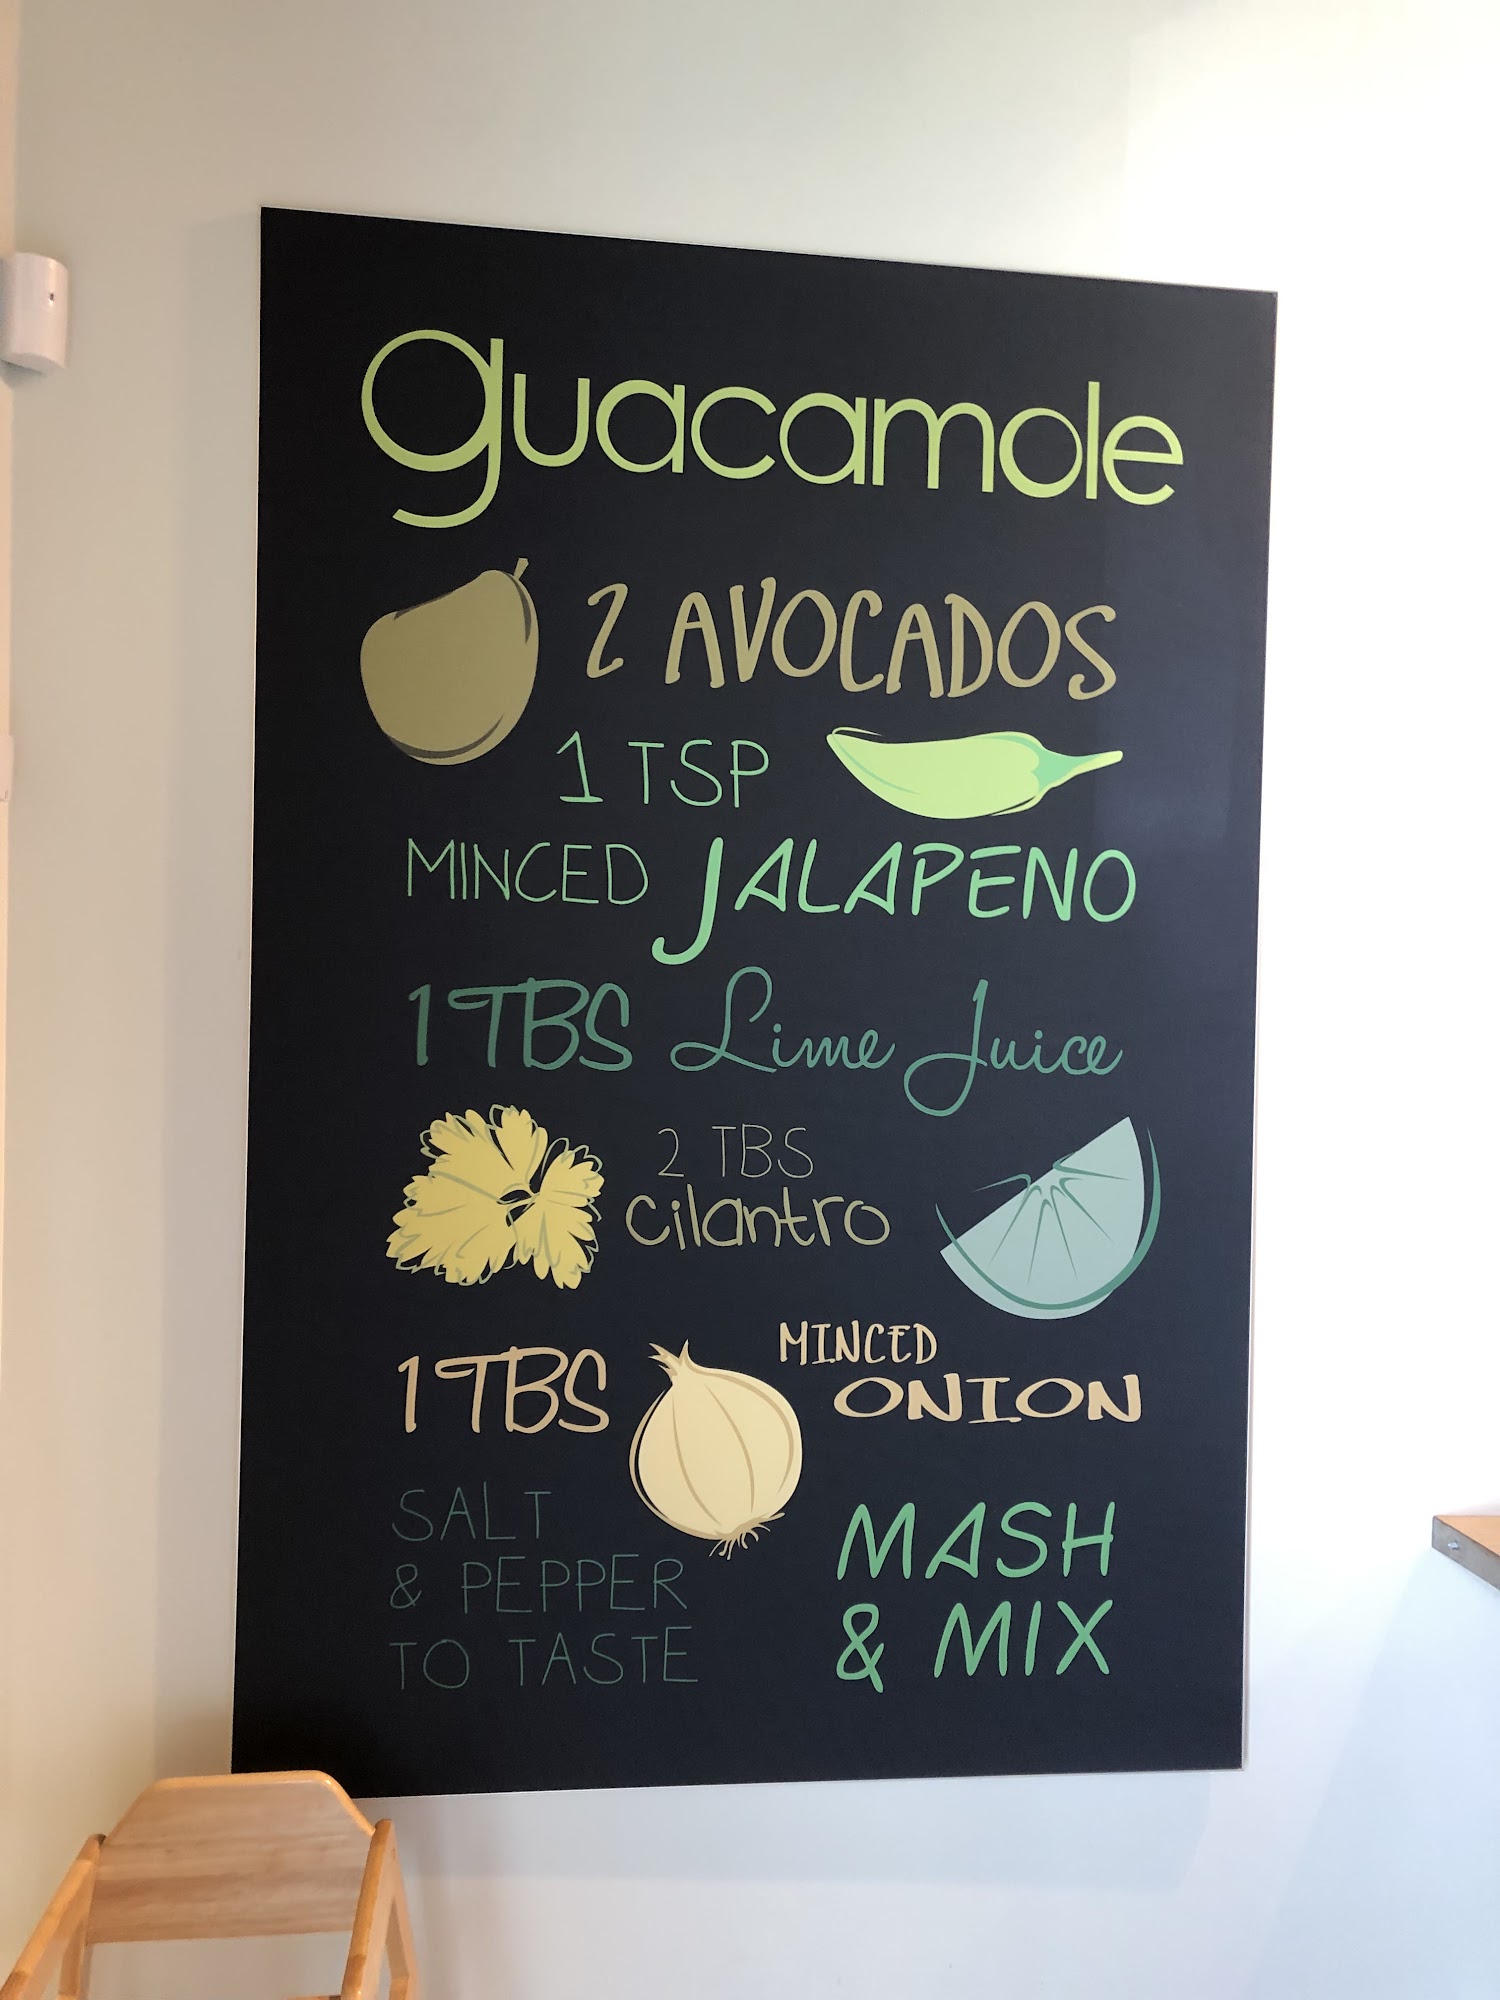 guacamole
2 AVOCADOS
1 TSP
MINCED JALAPENO
1 TBS Lime Juice
2 TBS
cilantro
1 TBS
MINCED
ONION
SALT
& PEPPER
TO TASTE
MASH
& MIX